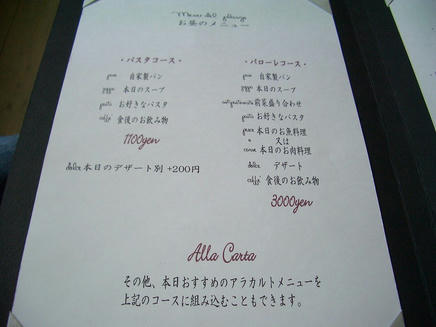 お昼のメニュー
・パスタコース・
pane 自家製パン
zuppa 本日のスープ
pasta お好きなパスタ
caffè 食後のお飲み物
1100yen
dolce 本日のデザート別 +200円
・パローレコース・
pane 自家製パン
zuppa 本日のスープ
antipastomisto 前菜盛り合わせ
pasta お好きなパスタ
pesce 本日のお魚料理
又は
carne 本日のお肉料理
dolce デザート
caffè 食後のお飲み物
3000yen
Alla Carta
その他、本日おすすめのアラカルトメニューを
上記のコースに組み込むこともできます。